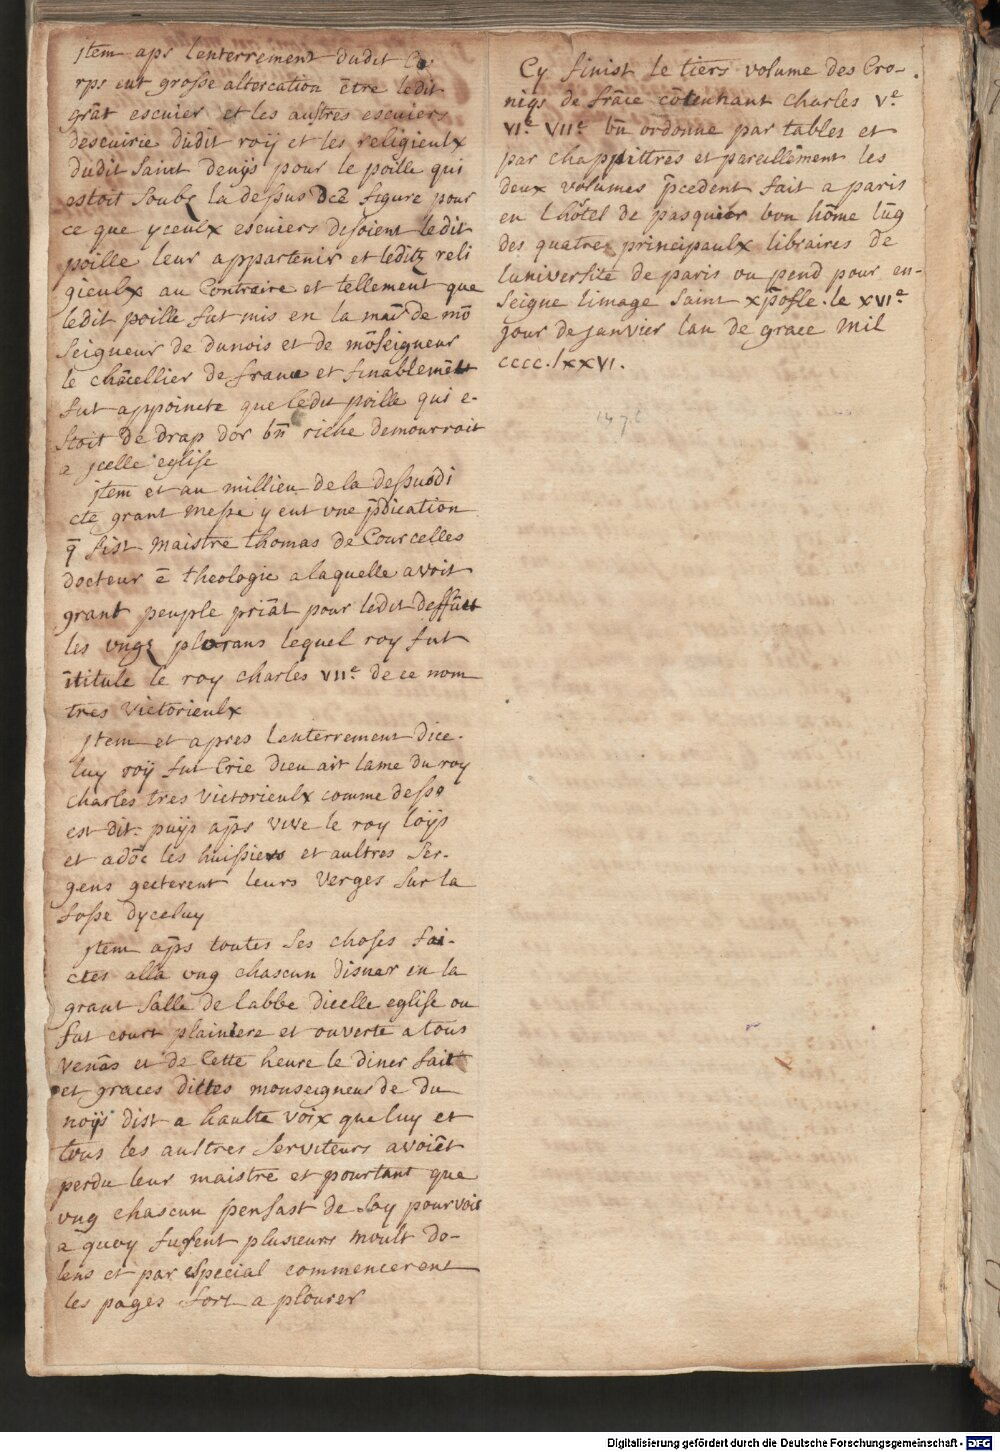 jtem aps lenterrement dudit Co
rps eut grosse altercation ētre ledit
grāt escuier et les austres escuiers
descuirie dudit roy et les religieulx
dudit saint denijs pour le poille qui
estoit soubz la dessus dcē figure pour
ce que yceulx escuiers desoient ledit
poille leur appartenir et leditz reli
gieulx au Contraire et tellement que
ledit poille fut mis en la maī de mō
seigneur de dunois et de mōseigneur
le chācellier de france et finablemēt
fut appoincte que ledit poille qui e-
stoit de drap dor bn̄ riche demourroit
a jcelle eglise
jtem et au millieu de la dessusdi
cte grant messe y eut vne p̄dication
q̄ fist maistre thomas de Courcelles
docteur ē theologie a laquelle avoit
grant peuple priāt pour ledit deffūct
les vngz plorans lequel roy fut
ītitule le roy charles VIIe de ce nom
tres victorieulx
jtem et apres lenterrement dice-
luy roÿ fut Crie dieu ait lame du roy
charles tres victorieulx comme dess9
est dit. puijs ap̄s vive le roy loijs
et adōc les huissiers et aultres ser-
gens gecterent leurs verges sur la
fosse dyceluy
jtem ap̄s toutes ses choses fai-
ctes alla vng chascun disner en la
grant salle de labbe dicelle eglise ou
fut court plainiere et ouverte a tous
venās et de Cette heure le diner fait
et graces dittes monseigneur de du
noijs dist a haulte voix que luy et
tous les aultres serviteurs avoiēt
perdu leur maistre et pourtant que
vng chascun pensast de soy pourvoir
a quoy fusent plusieurs moult do-
lens et par especial commencerent
les pages fort a plourer
Cy finist le tiers volume des Cro-
niqs de frāce cōtenant charles Ve
VIe VIIe bn̄ ordonne par tables et
par chappittres et pareillēment les
deux volumes p̄cedent fait a paris
en l hôtel de pasquier bon hōme lūg
des quatre principaulx libraires de
luniversité de paris ou pend pour en-
seigne limage saint xp̄ofle. le XVIe
jour de janvier lan de grace mil
cccc.lxxVI.
1476
Digitalisierung gefördert durch die Deutsche Forschungsgemeinschaft - DFG